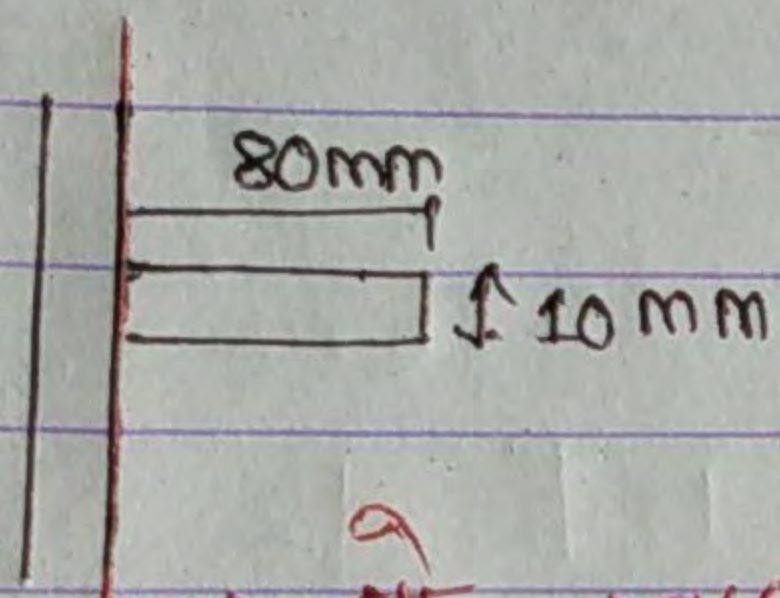 80mm
10 mm